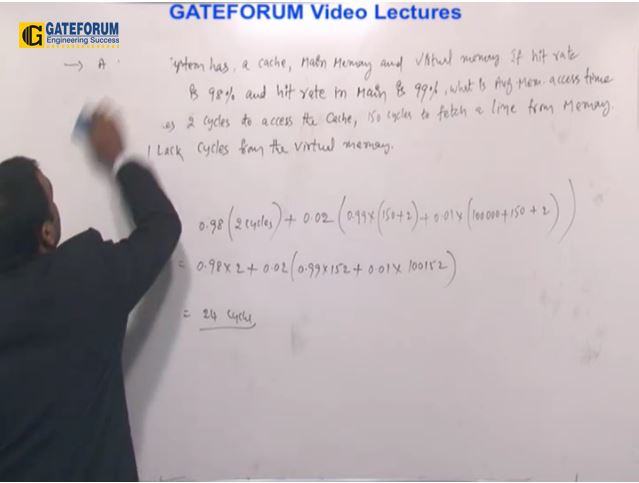 GATEFORUM Video Lectures
GATEFORUM
Engineering Success
→ A ystem has, a cache, Main Memory and Virtual memory If hit rate
is 98% and hit rate in Main is 99%, what is Avg Mem. access time
es 2 cycles to access the Cache, 150 cycles to fetch a line from Memory.
1 Lack cycles from the virtual memory.
0.98 (2 cycles) + 0.02 (0.99×(150+2) + 0.01×(100000+150+2))
= 0.98×2 + 0.02 (0.99×152 + 0.01× 100152)
= 24 cycle